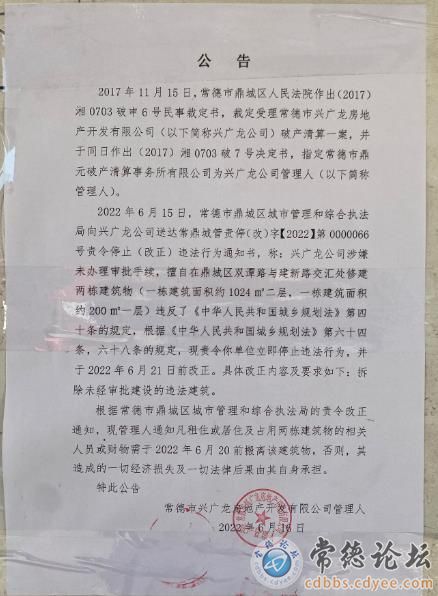 公 告
2017年11月15日,常德市鼎城区人民法院作出(2017)
湘0703破申6号民事裁定书,裁定受理常德市兴广龙房地
产开发有限公司(以下简称兴广龙公司)破产清算一案,并
于同日作出(2017)湘0703破7号决定书,指定常德市鼎
元破产清算事务所有限公司为兴广龙公司管理人(以下简称
管理人)。
2022年6月15日,常德市鼎城区城市管理和综合执法
局向兴广龙公司送达常鼎城管责停(改)字【2022】第0000066
号责令停止(改正)违法行为通知书,称:兴广龙公司涉嫌
未办理审批手续,擅自在鼎城区双潭路与建新路交汇处修建
两栋建筑物(一栋建筑面积约1024㎡二层,一栋建筑面积
约200㎡一层)违反了《中华人民共和国城乡规划法》第四
十条的规定,根据《中华人民共和国城乡规划法》第六十四
条,六十八条的规定,现责令你单位立即停止违法行为,并
于2022年6月21日前改正。具体改正内容及要求如下:拆
除未经审批建设的违法建筑。
根据常德市鼎城区城市管理和综合执法局的责令改正
通知,现管理人通知凡租住或居住及占用两栋建筑物的相关
人员或财物需于2022年6月20前搬离该建筑物,否则,其
造成的一切经济损失及一切法律后果由其自身承担。
特此公告
常德市兴广龙房地产开发有限公司管理人
2022年6月16日
常德论坛
cdbbs.cdyee.com